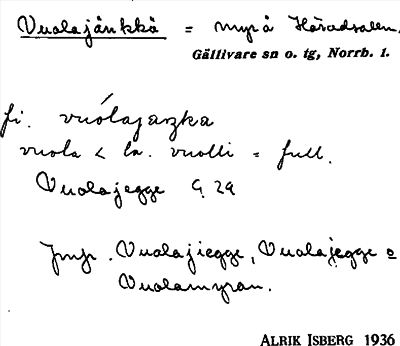 Vuolajänkkä = myr å Häradsallm.
Gällivare sn o. tg, Norrb. l.
fi. vuólajaŋka
vuola < la. vuolli = full.
Vuolajegge G. 29
Jmfr. Vuolajiegge, Vuolajegge o
Vuolamyran.
ALRIK ISBERG 1936